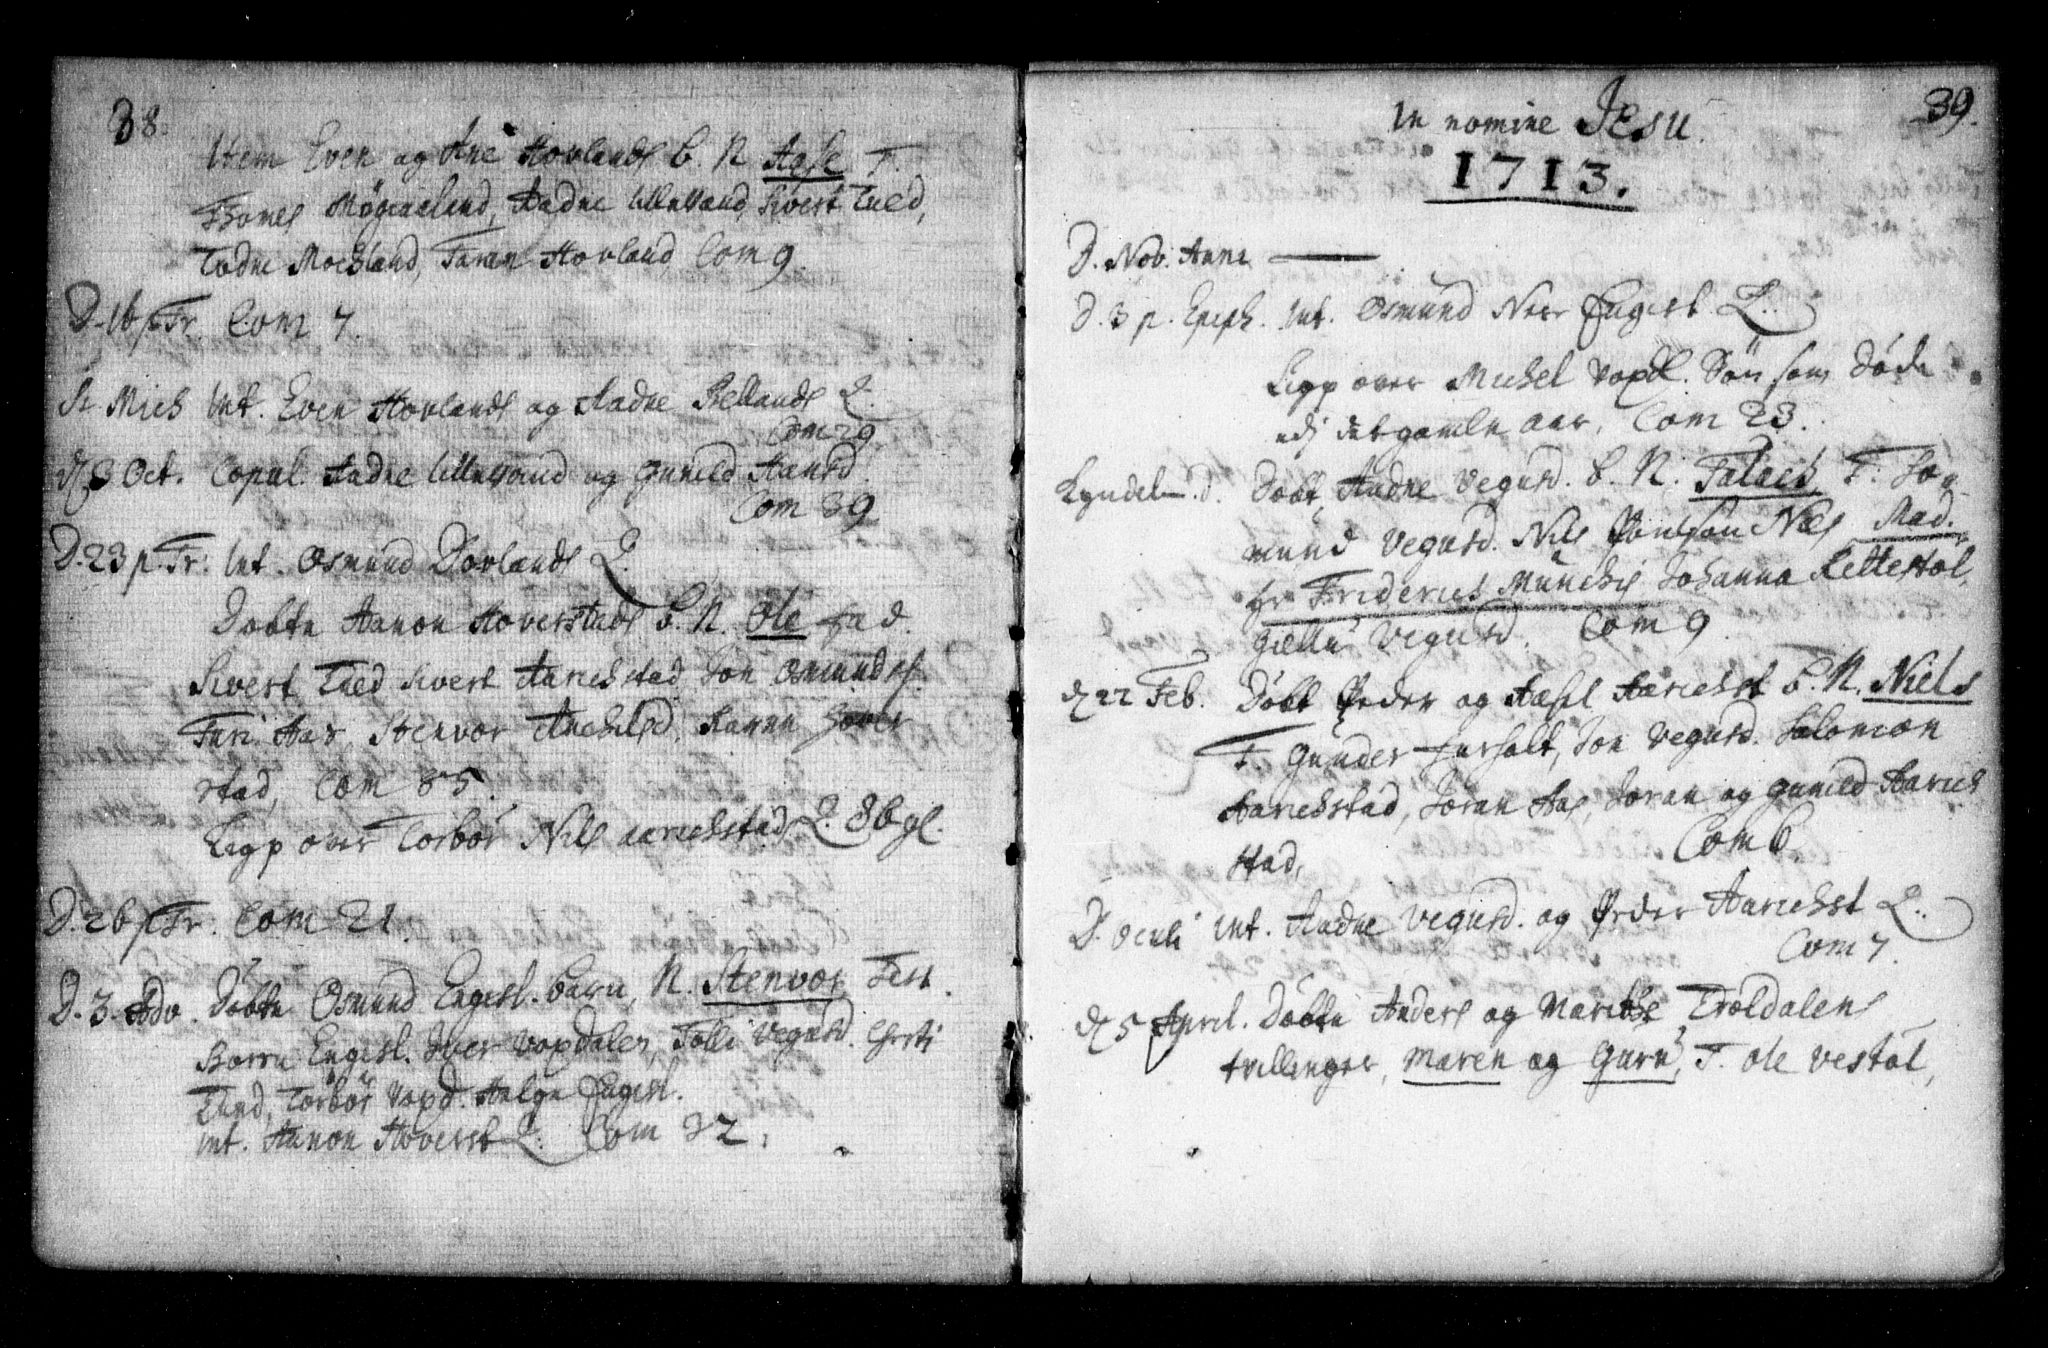 38.
Item Even og Ane Hovlands b. N Aase F.
Thomes Møgeland, Aadne Ullevand, Sivert Tued,
Todne Moesland, Taran Hovland Com 9.
D. 16 p. Tr. Com 7.
St Mich Int. Even Hovlands og Aadne Rellands Q.
Com 29
d 3 Oct. Copul. Aadne Ullevand og Gunild Haausd.
Com 39
D. 23 p. Tr: Int. Osmund Dovlands Q.
Døbte Aanon Hoverstads b. N. Ole fad.
Sivert Tued Sivert Aarichstad Jon Osmunds.
Turi Aas, Stenvor Aarichst. Karen Hover
stad, Com 85.
Legp over Torbør Nils Aarichstad Q. 36 gl.
D. 26 p. Tr. Com 21.
D. 3. Adv. Døbte Osmund Engesl. barn, N. Stenvor Test.
Børre Engesl. Iver Vopdalen, Tolli Vegusd. Christi
Tued, Torbør Vopd. Helge Engesl.
Int. Aanon Hoverst Q. Com 32.
39.
In nomine Jesu.
1713.
D. Nov. Anni
D. 3 p. Epiph. Int. Osmund Ness Engest. Q.
Legp over Michel Vopdl. Søn som døde
udj det gamle aar, Com 23.
Kyndelm. d. Døbt Aadne Vegusd. b. N. Talach F. Sø
mund Vegusd. Nils Povelsøn Næs Mad.
Hr Friderich Münchis Johanna Kettestøl,
Vegusd. Com 9.
d 22 Feb. Døbt Peder og Aasel Aarichst b. N. Niels
F. Gunder furholt, Jon Vegusd. Salomon
Aarichstad, Joran Aas, Joran og Gunild Aarich
stad, Com 6
D. Oculi Int. Aadne Vegusd. og Peder Aarichst Q.
Com 7.
d 5 April. Døbte Anders og Marithe Trøldalens
tvillinger, Maren og Guru, F. Ole Vestøl,